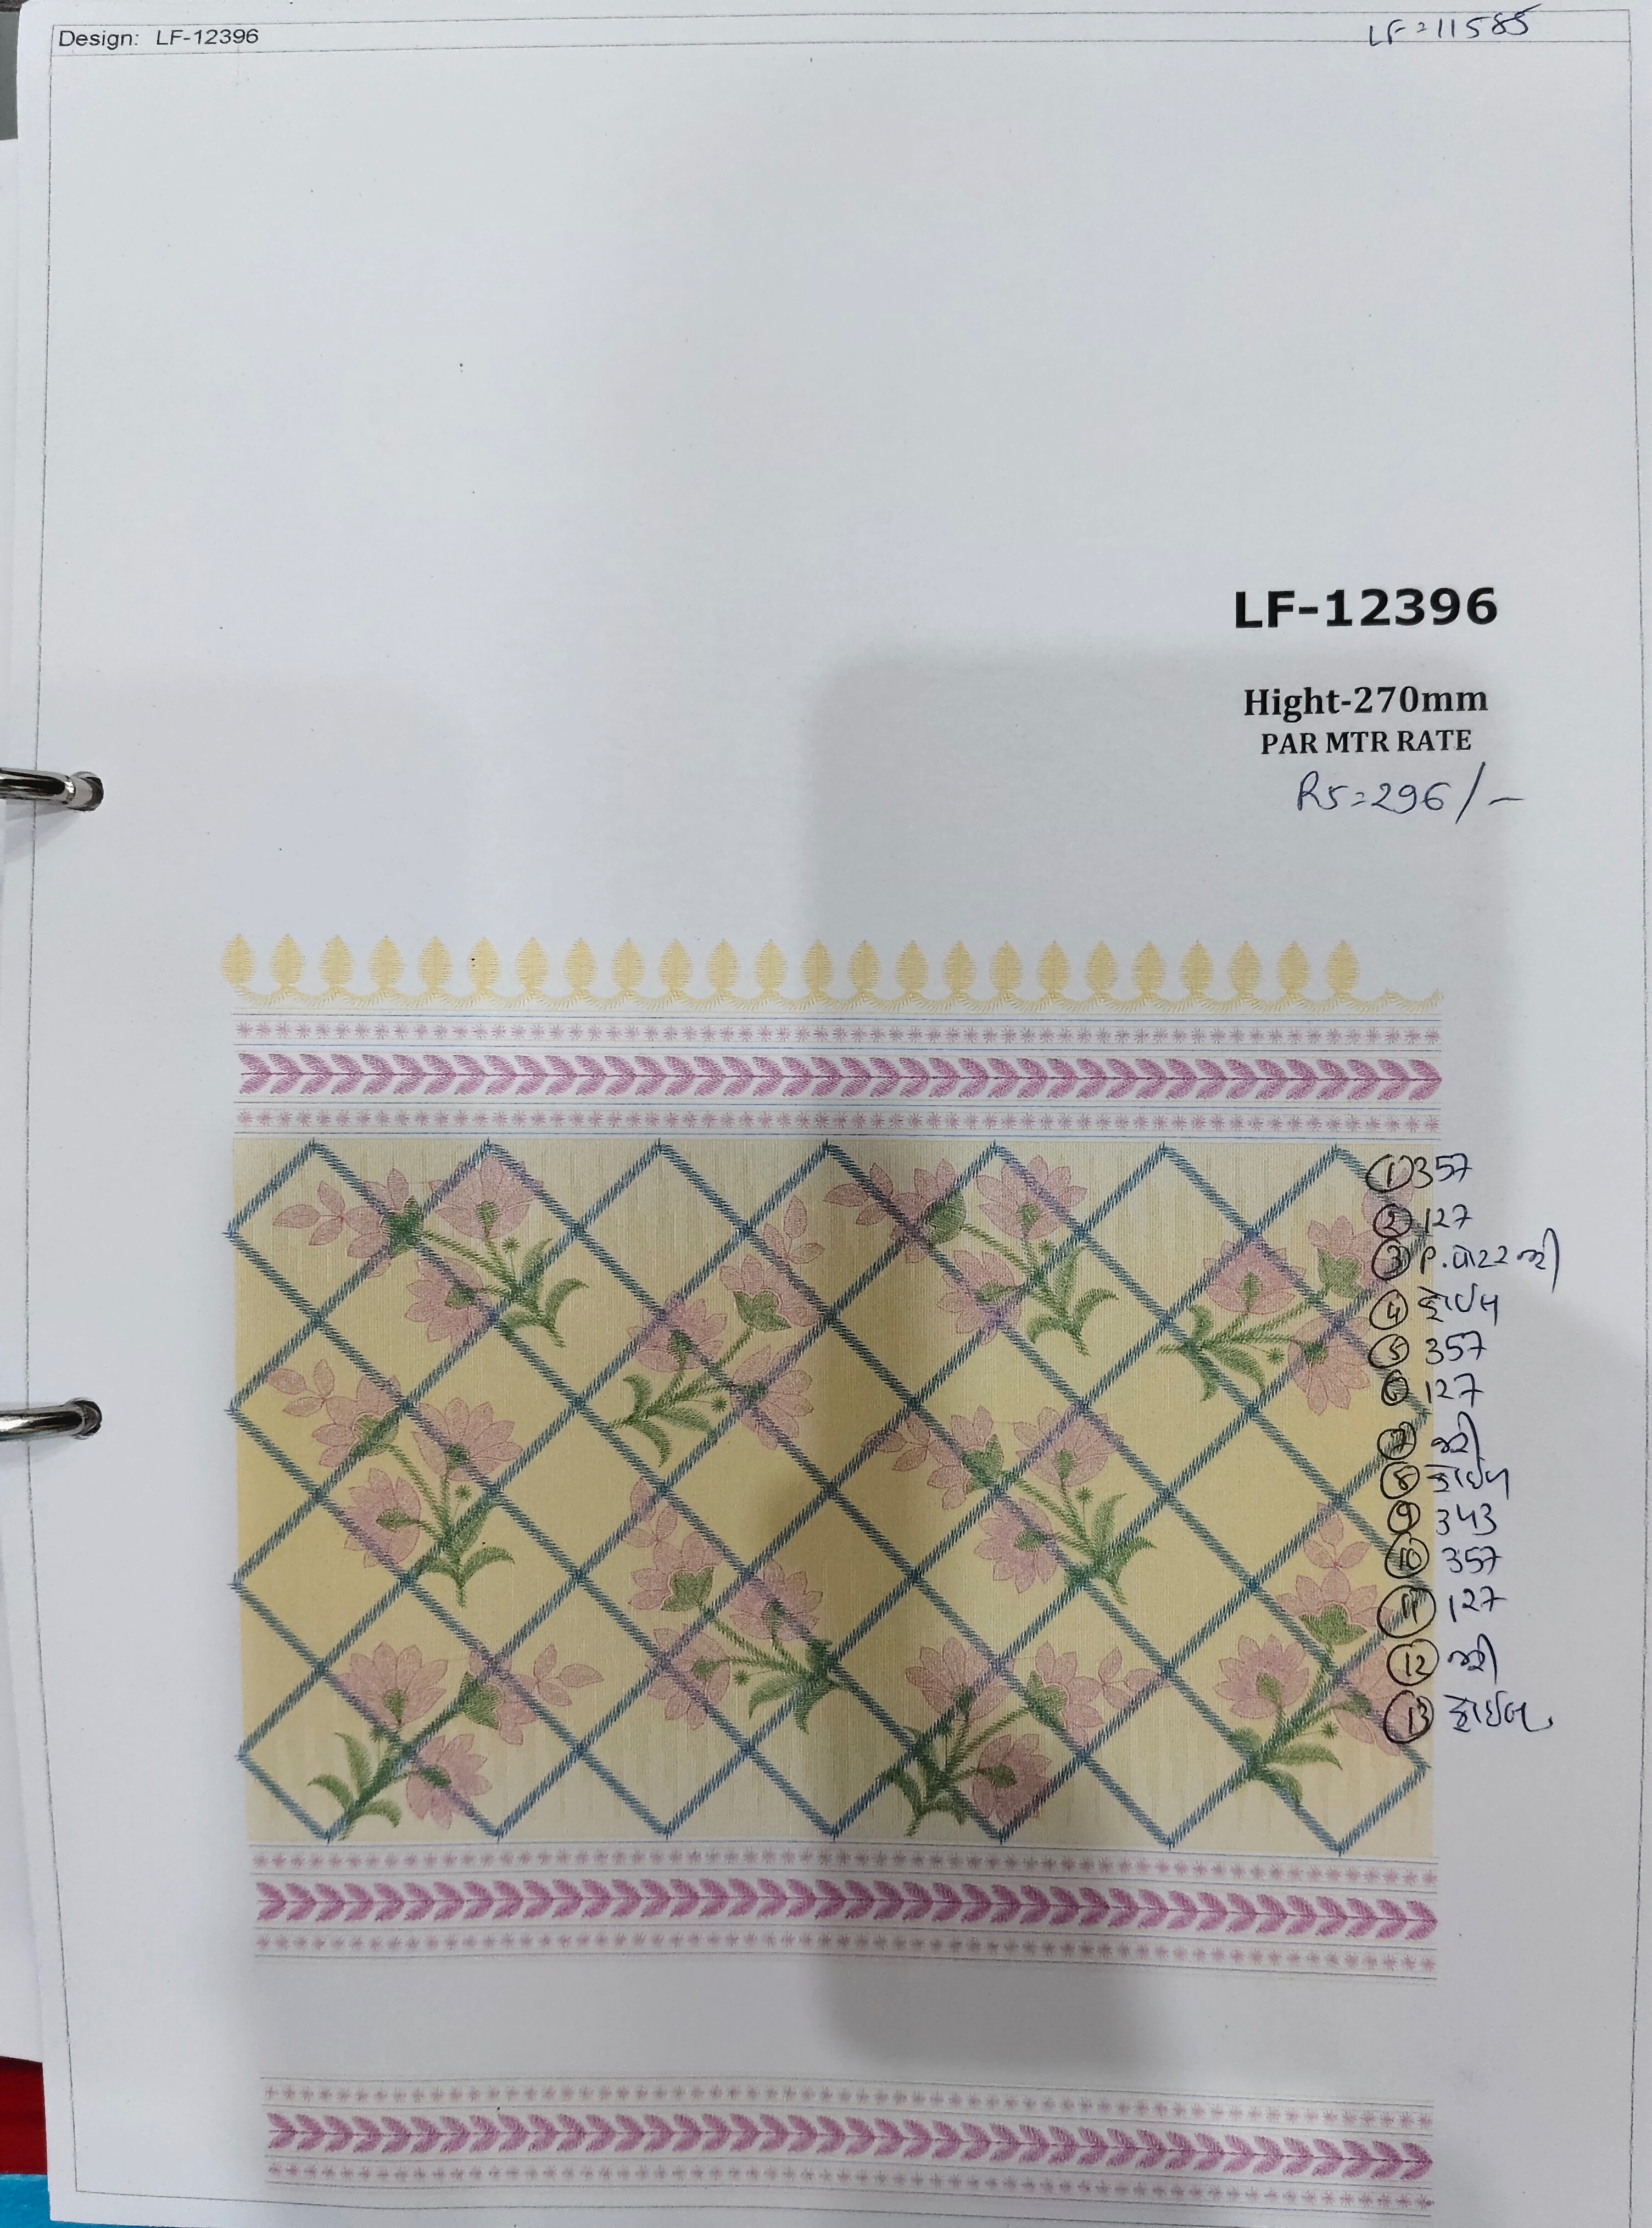 Design: LF-12396
LF=11585
LF-12396
Hight-270mm
PAR MTR RATE
Rs=296/-
① 357
② 127
③ P. વોટર જરી
④ ફોઈલ
⑤ 357
⑥ 127
⑦ જરી
⑧ ફોઈલ
⑨ 343
⑩ 357
⑪ 127
⑫ જરી
⑬ ફોઈલ